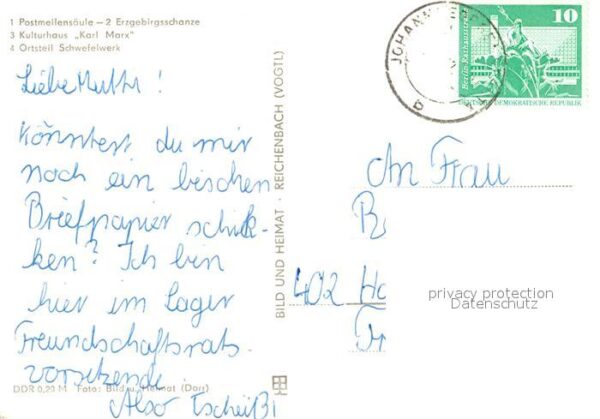 1 Postmeilensäule — 2 Erzgebirgsschanze
3 Kulturhaus „Karl Marx"
4 Ortsteil Schwefelwerk
Liebe Mutti!
Könntest du mir
noch ein bischen
Briefpapier schik-
ken? Ich bin
hier im Lager
Freundschaftsrats-
vorsitzende.
Also Tschüß!
DDR 0,20 M Foto: Bild u. Heimat (Dorr)
BILD UND HEIMAT · REICHENBACH (VOGTL)
JOHANN
Berlin, Rathausstraße
10
DEUTSCHE DEMOKRATISCHE REPUBLIK
An Frau
402 Ha
privacy protection
Datenschutz